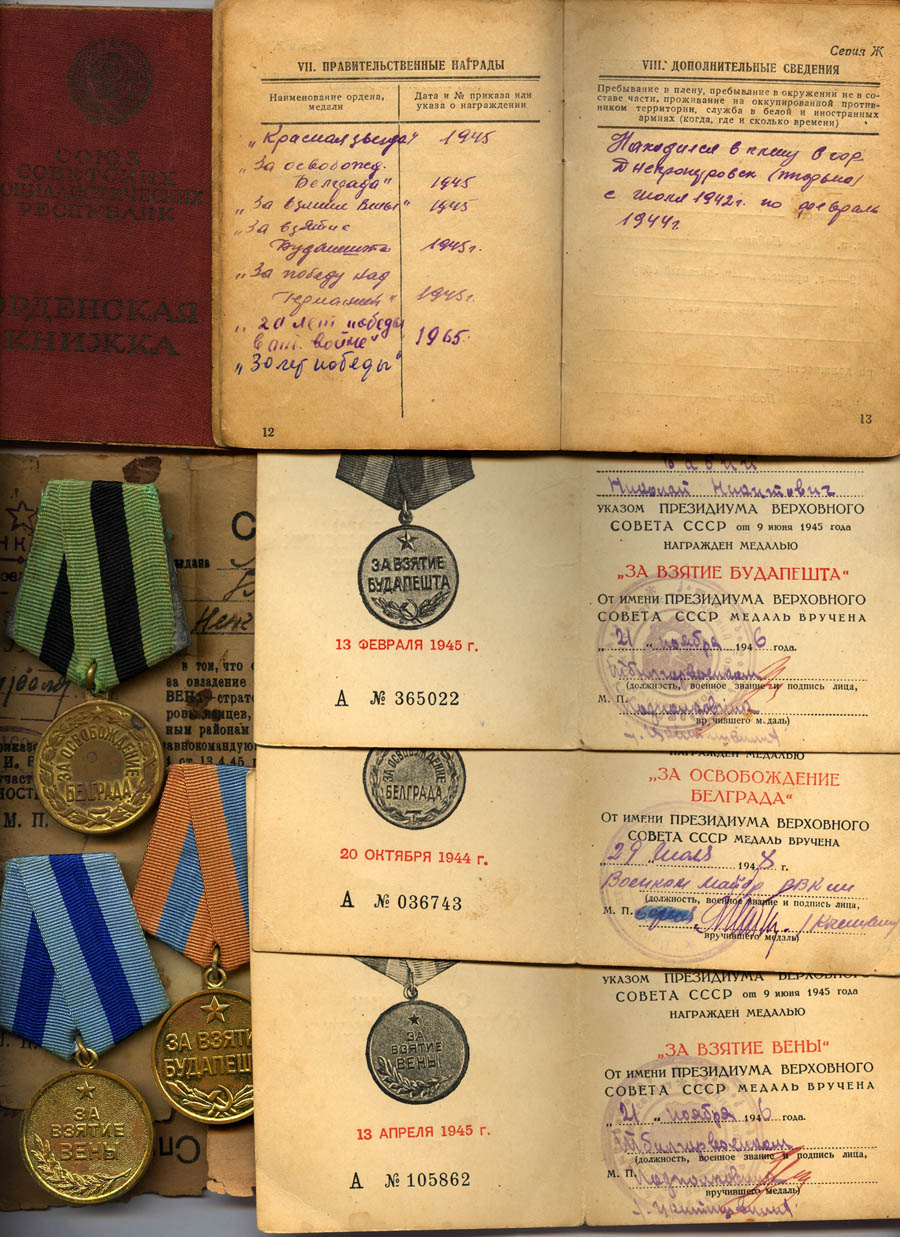 СОЮЗ
СОВЕТСКИХ
СОЦИАЛИСТИЧЕСКИХ
РЕСПУБЛИК
ОРДЕНСКАЯ
КНИЖКА
VII. ПРАВИТЕЛЬСТВЕННЫЕ НАГРАДЫ
Наименование ордена, медали
Дата и № приказа или указа о награждении
„Красная звезда" 1945
„За освобожд.
Белграда" 1945
„За взятие Вены" 1945
„За взятие
Будапешта 1945г.
„За победу над
Германией" 1945г.
„20 лет победы
в от. войне" 1965
„30 лет победы"
12
Серия Ж
VIII. ДОПОЛНИТЕЛЬНЫЕ СВЕДЕНИЯ
Пребывание в плену, пребывание в окружении не в со-
ставе части, проживание на оккупированной против-
ником территории, служба в белой и иностранных
армиях (когда, где и сколько времени)
Находился в плену в гор.
(тюрьма)
с июля 1942г. по февраль
1944г.
13
ЗА ОСВОБОЖДЕНИЕ
БЕЛГРАДА
ЗА
ВЗЯТИЕ
ВЕНЫ
ЗА ВЗЯТИ
БУДАПЕШ
в том, что
за овладение
ВЕНА
М. П.
ЗА ВЗЯТИЕ
БУДАПЕШТА
13 ФЕВРАЛЯ 1945 г.
А № 365022
Николай
УКАЗОМ ПРЕЗИДИУМА ВЕРХОВНОГО
СОВЕТА СССР от 9 июня 1945 года
НАГРАЖДЕН МЕДАЛЬЮ
„ЗА ВЗЯТИЕ БУДАПЕШТА"
От имени ПРЕЗИДИУМА ВЕРХОВНОГО
СОВЕТА СССР МЕДАЛЬ ВРУЧЕНА
„21" ноября 1946 года.
(должность, военное звание и подпись лица,
М. П.
вручившего медаль)
ЗА ОСВОБОЖДЕНИЕ
БЕЛГРАДА
20 ОКТЯБРЯ 1944 г.
А № 036743
НАГРАЖДЕН МЕДАЛЬЮ
„ЗА ОСВОБОЖДЕНИЕ
БЕЛГРАДА"
От имени ПРЕЗИДИУМА ВЕРХОВНОГО
СОВЕТА СССР МЕДАЛЬ ВРУЧЕНА
„29 июля 1948 г.
Военком майор
(должность, военное звание и подпись лица,
М. П.
вручившего медаль)
ЗА
ВЗЯТИЕ
ВЕНЫ
13 АПРЕЛЯ 1945 г.
А № 105862
УКАЗОМ ПРЕЗИДИУМА ВЕРХОВНОГО
СОВЕТА СССР от 9 июня 1945 года
НАГРАЖДЕН МЕДАЛЬЮ
„ЗА ВЗЯТИЕ ВЕНЫ"
От имени ПРЕЗИДИУМА ВЕРХОВНОГО
СОВЕТА СССР МЕДАЛЬ ВРУЧЕНА
„21" ноября 1946 года.
(должность, военное звание и подпись лица,
М. П.
вручившего медаль)